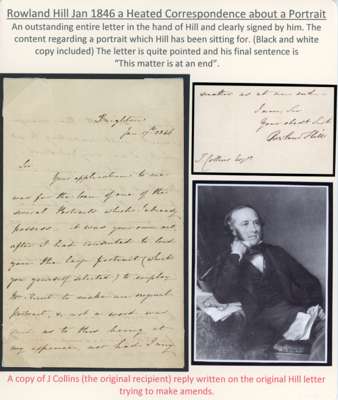 Rowland Hill Jan 1846 a Heated Correspondence about a Portrait
An outstanding entire letter in the hand of Hill and clearly signed by him. The
content regarding a portrait which Hill has been sitting for. (Black and white
copy included) The letter is quite pointed and his final sentence is
"This matter is at an end".
Brighton
Jan 1846
Sir
Your application to me
was for the loan of one of the
several Portraits which I already
possess. it was your own act,
after I had consented to lend
you the large portrait (which
you yourself selected) to employ
Mr. to make an original
portrait, & not a word was
said as to this being at
my expense, nor had I any
matter is at an end.
I am, Sir
Your obedt Servt
Rowland Hill
J Collins Esqr
A copy of J Collins (the original recipient) reply written on the original Hill letter
trying to make amends.